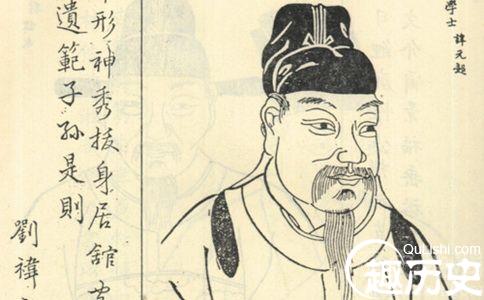 學士 諱元超
形神秀拔身居舘
遺範子孫是則
劉禕
QuLishi.com
趣历史